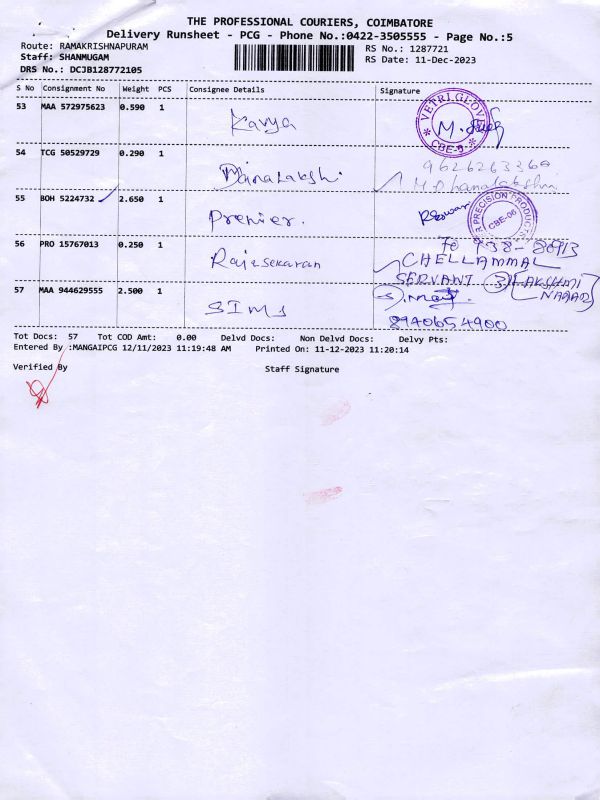 THE PROFESSIONAL COURIERS, COIMBATORE
Delivery Runsheet - PCG - Phone No.:0422-3505555 - Page No.:5
Route: RAMAKRISHNAPURAM RS No.: 1287721
Staff: SHANMUGAM RS Date: 11-Dec-2023
DRS No.: DCJB128772105
S No Consignment No Weight PCS Consignee Details Signature
53 MAA 572975623 0.590 1 Kavya VETRI GLOVE CBE-9
54 TCG 50529729 0.290 1 Danalakshi 9626263360
M.Dhanalakshmi
55 BOH 5224732 2.650 1 Premier. PRECISION PRODUCTS CBE-06
56 PRO 15767013 0.250 1 Rajasekaran
CHELLAMMAL
SERVANT LAKSHMI NAGAR
57 MAA 944629555 2.500 1 SIMS
8940654900
Tot Docs: 57 Tot COD Amt: 0.00 Delvd Docs: Non Delvd Docs: Delvy Pts:
Entered By :MANGAIPCG 12/11/2023 11:19:48 AM Printed On: 11-12-2023 11:20:14
Verified By Staff Signature